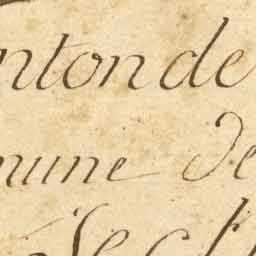 nton de
mune de
Sect